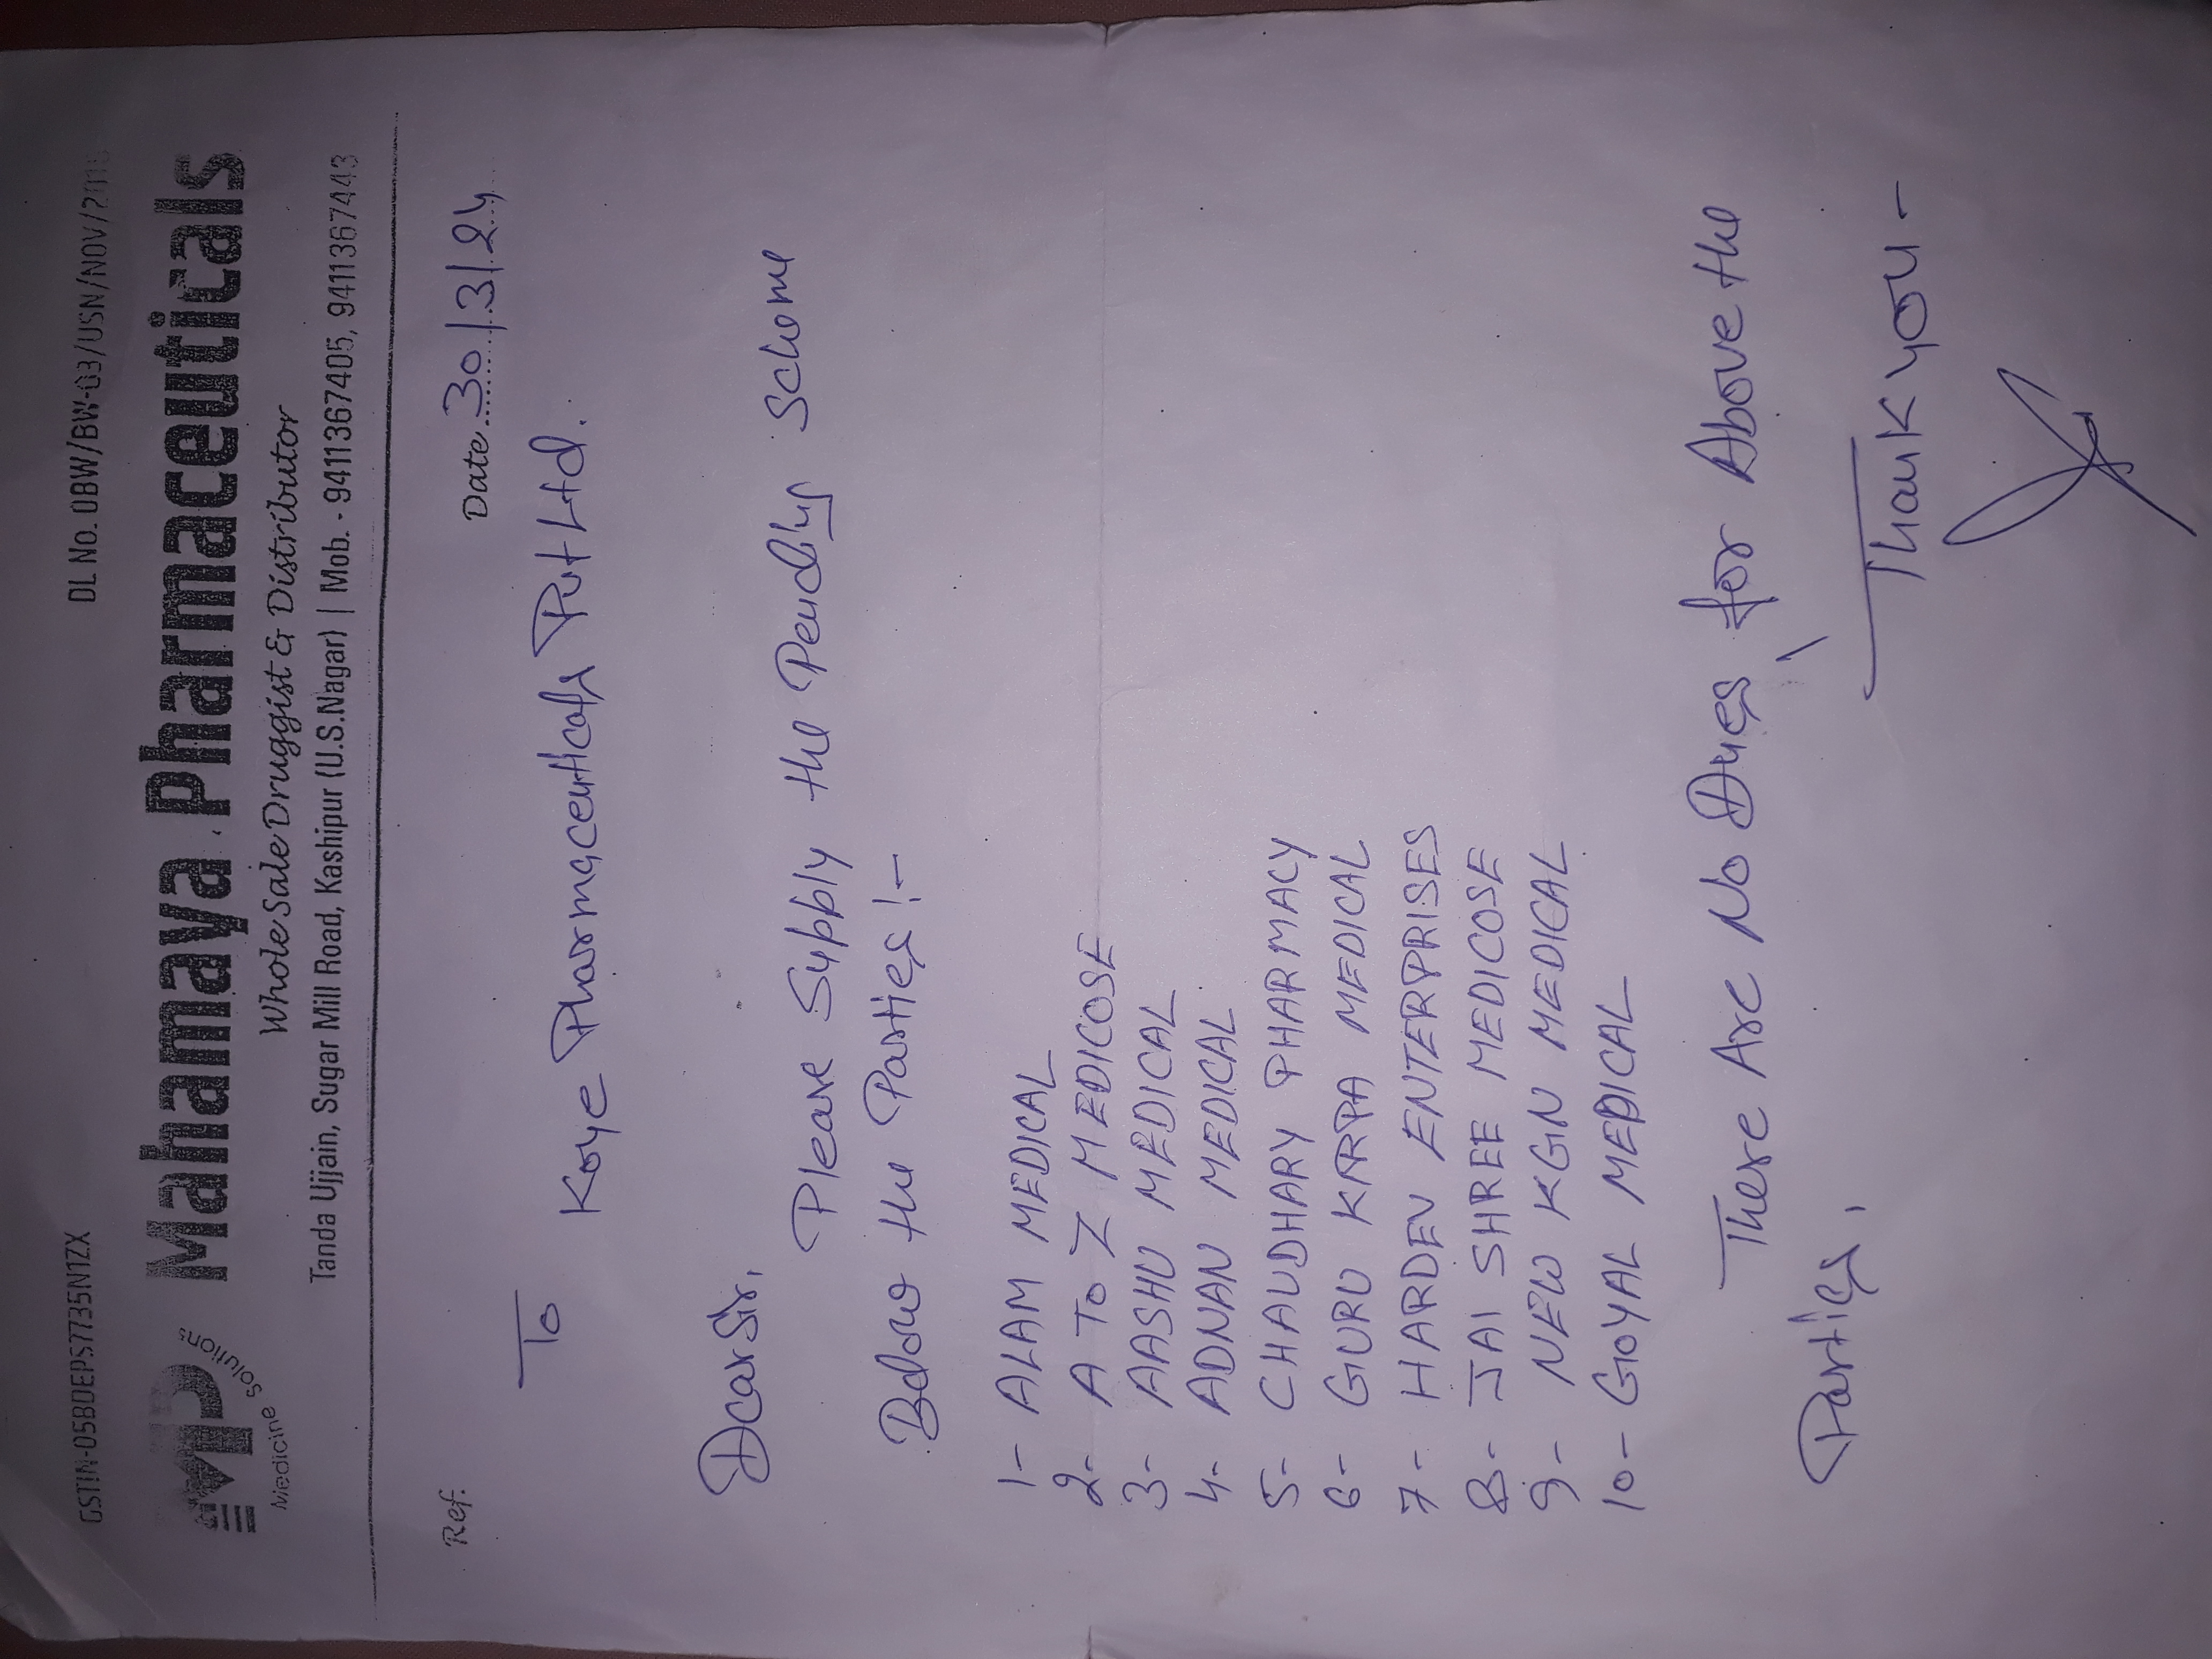 GSTIN-05BDEPS7735N1ZX DL No. OBW/BW-03/USN/NOV/
MP Mahamaya Pharmaceuticals
Medicine Solution
Whole Sale Druggist & Distributor
Tanda Ujjain, Sugar Mill Road, Kashipur (U.S.Nagar) | Mob. - 9411367405, 9411367443
Ref. Date 30/3/24
To
Koye Pharmaceuticals Pvt Ltd.
Dear Sir,
Please Supply the Pending Scheme
Below the Parties:-
1- ALAM MEDICAL
2- A To Z MEDICOSE
3- AASHU MEDICAL
4- ADNAN MEDICAL
5- CHAUDHARY PHARMACY
6- GURU KARPA MEDICAL
7- HARDEV ENTERPRISES
8- JAI SHREE MEDICOSE
9- NEW KGN MEDICAL
10- GOYAL MEDICAL
There Are No Dues for Above the
Parties,
Thank you-